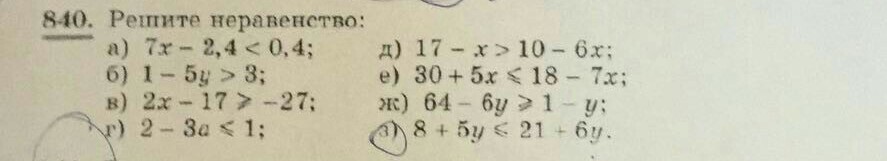 840. Решите неравенство:
а) 7x − 2,4 < 0,4;
б) 1 − 5y > 3;
в) 2x − 17 ⩾ −27;
г) 2 − 3a ⩽ 1;
д) 17 − x > 10 − 6x;
е) 30 + 5x ⩽ 18 − 7x;
ж) 64 − 6y ⩾ 1 − y;
з) 8 + 5y ⩽ 21 + 6y.